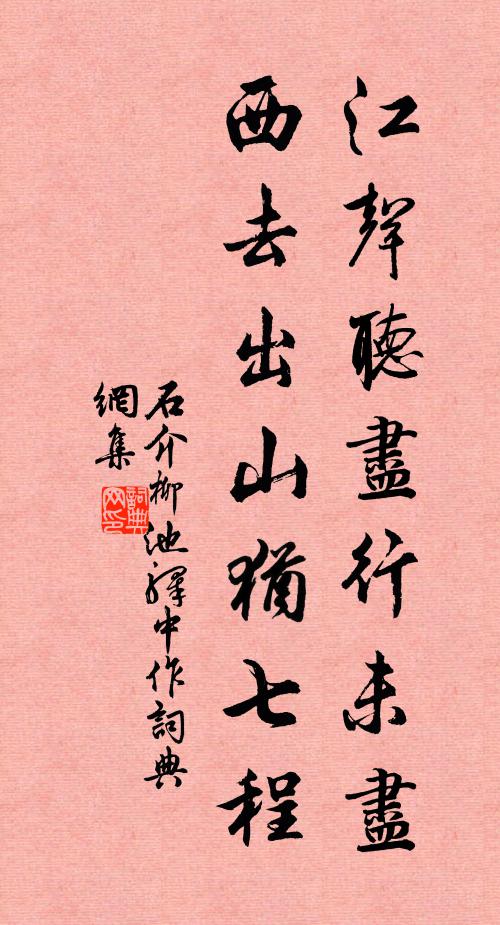 江聲聽盡行未盡
西去出山猶七程
石介柳池驛中作詞典
網集
詞典
网印